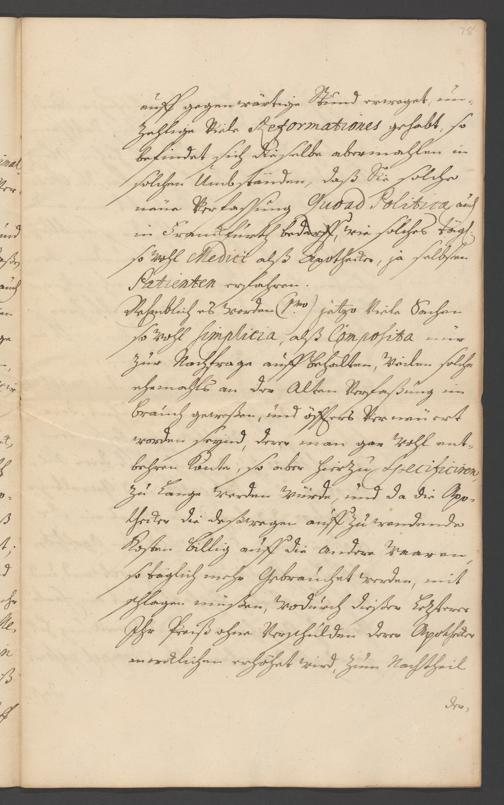 78
auff gegenwärtige Stund erreget, un-
zehlige viele Reformationes gehabt, so
befindet sich dieselbe abermahlen in
solchen Umbständen, daß Sie solche
neue Verfassung Quoad Politica, auch
in Franckfurth bedarff, wie solches tägl.
so wohl Medici alß Apothecker, ja selbsten
Patienten erfahren.
Nehmblich es werden (pmo) jetzo viele Sachen
so wohl Simplicia, alß Composita nur
zur Nachfrage auff behalten, weilen solche
ehemahls an der Alten Verfaßung im
brauch gewesen, und öffters Verneuert
worden seynd, derer man gar wohl ent-
behren könte, so aber hierzu Specificiren
zu lange werden würde, und da die Apo-
thecker die deßwegen auff zu wendende
Kosten billig auff die andere Waaren,
so täglich mehr Gebrauchet werden, mit
schlagen müßen, wodurch dießer letzterer
Ihr Preiß ohne Verschulden derer Apothecker
mercklichen erhöhet wird, zum Nachtheil
der,